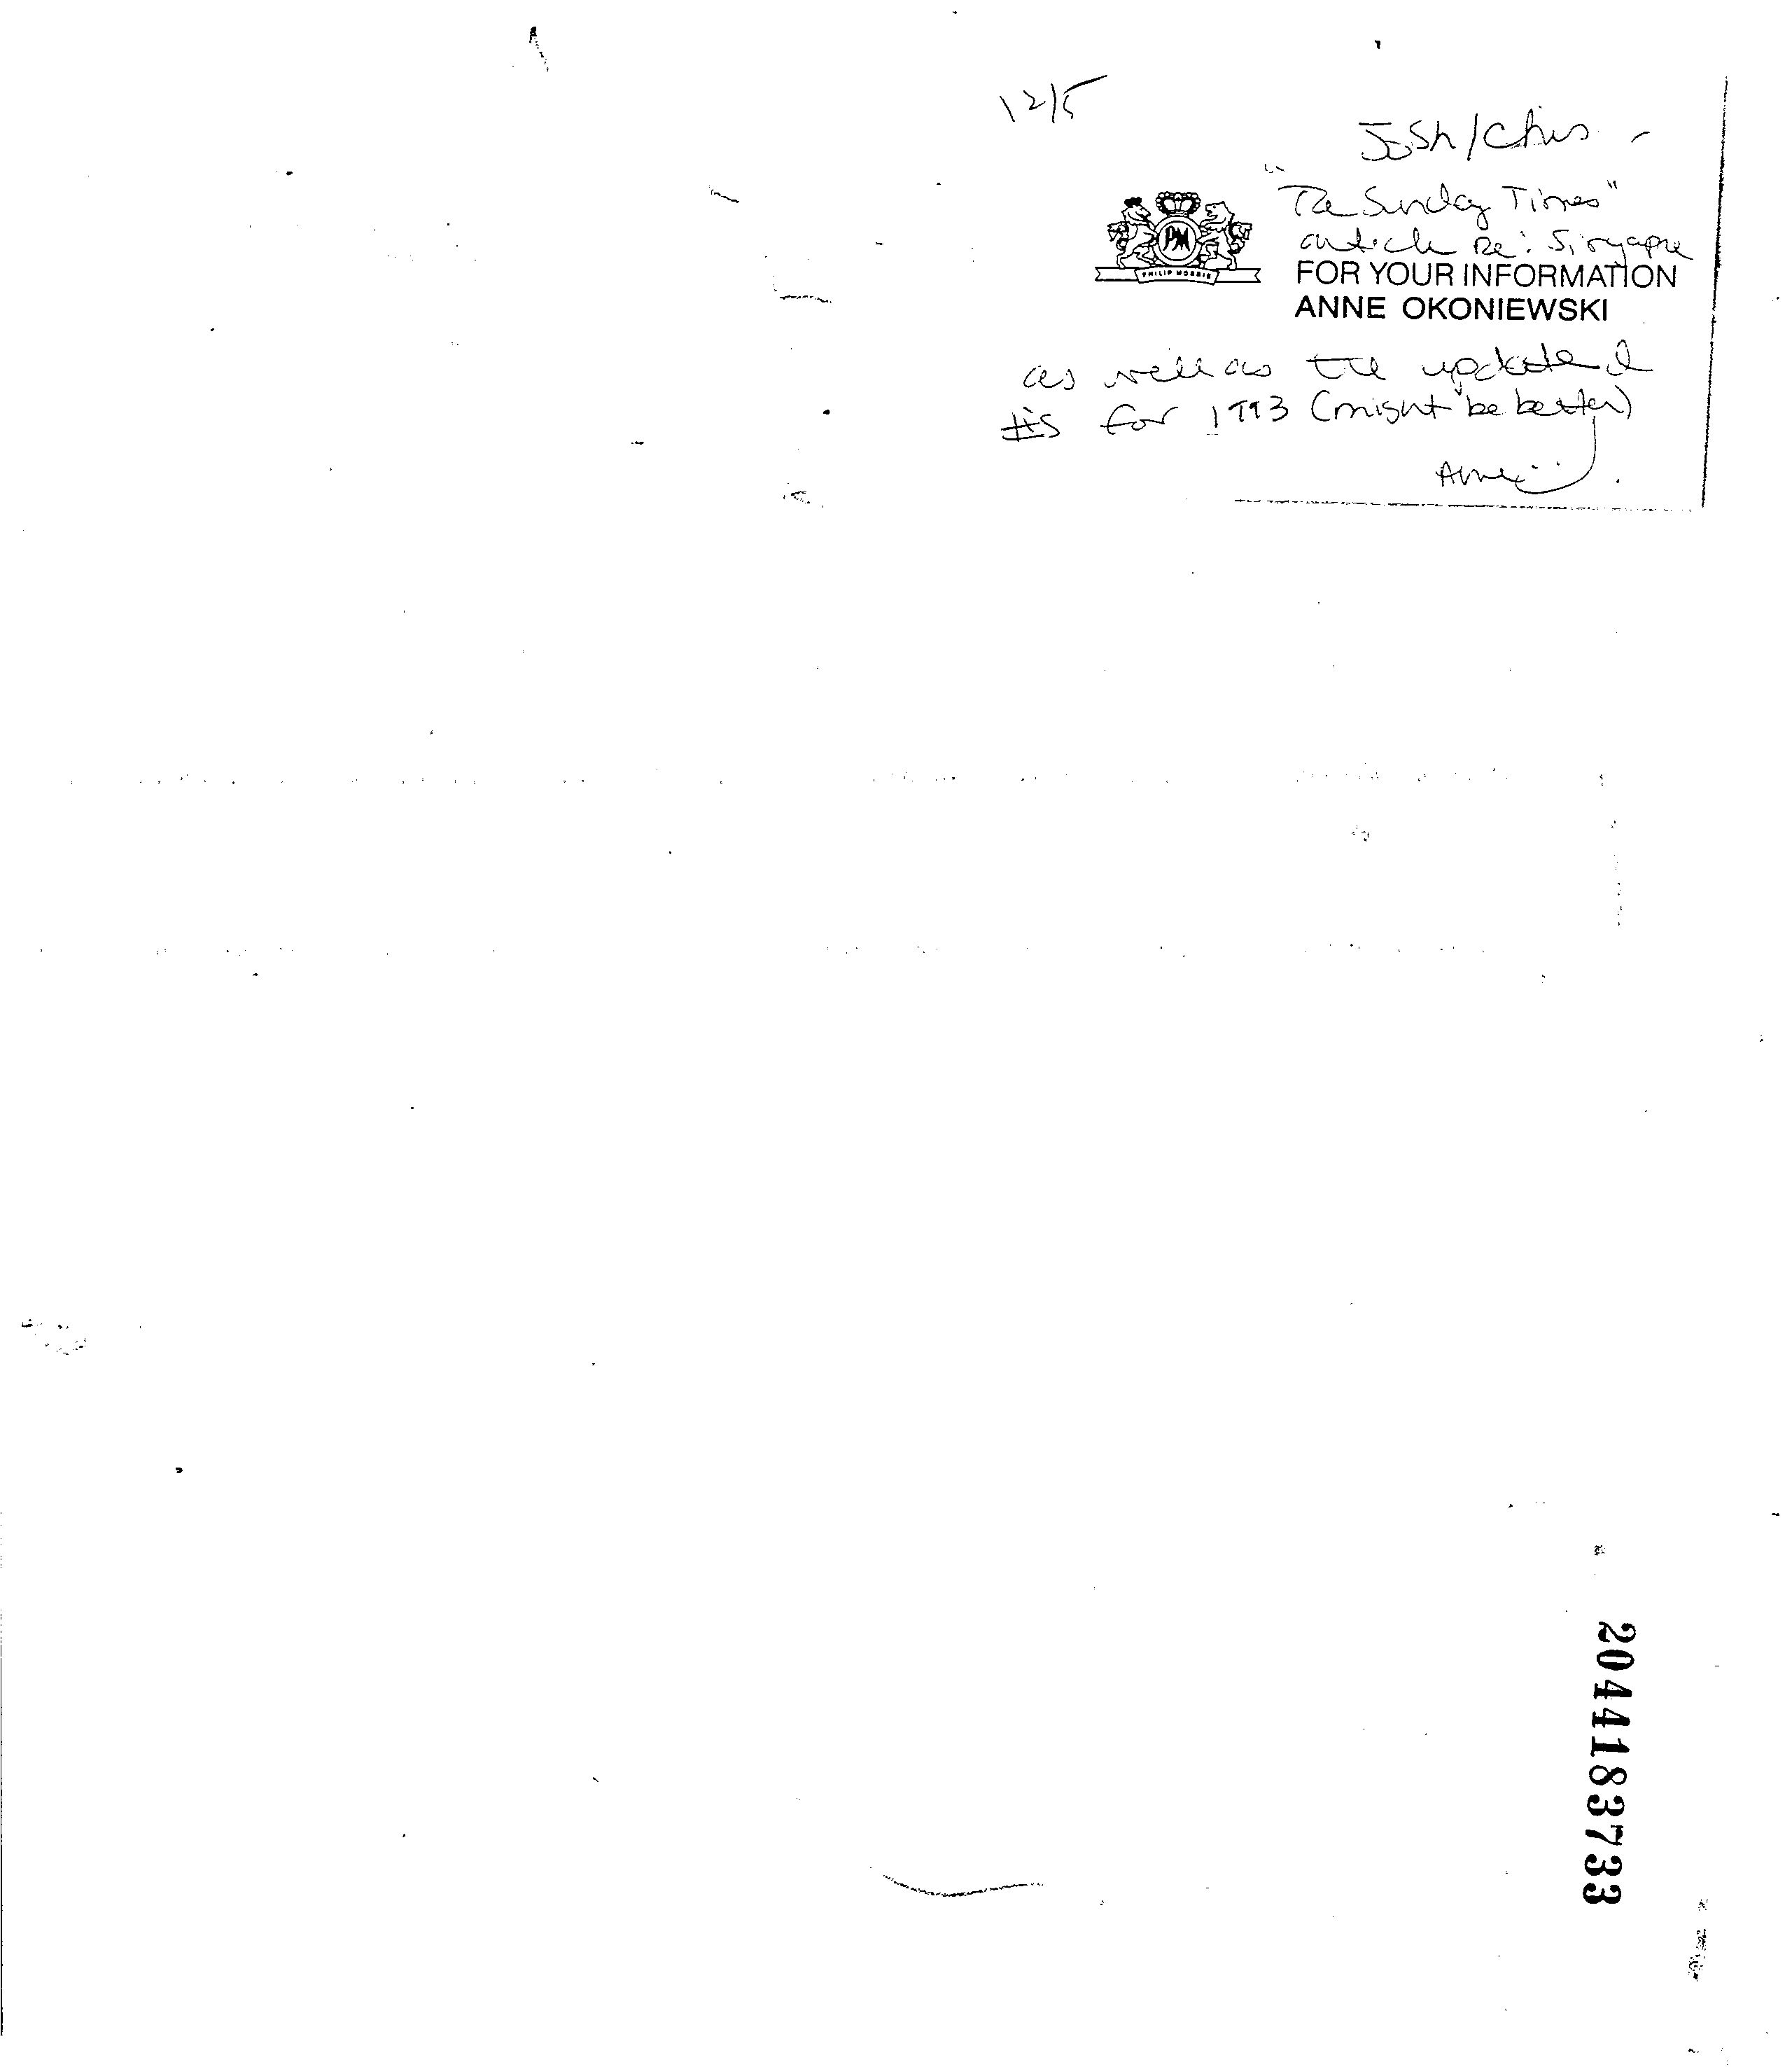 12/5
Josh/Chris -
"The Sunday Times"
article Re: Singapore
PM
PHILIP MORRIS
FOR YOUR INFORMATION
ANNE OKONIEWSKI
as well as the updated
#'s for 1993 (might be better)
Anne
2044183733